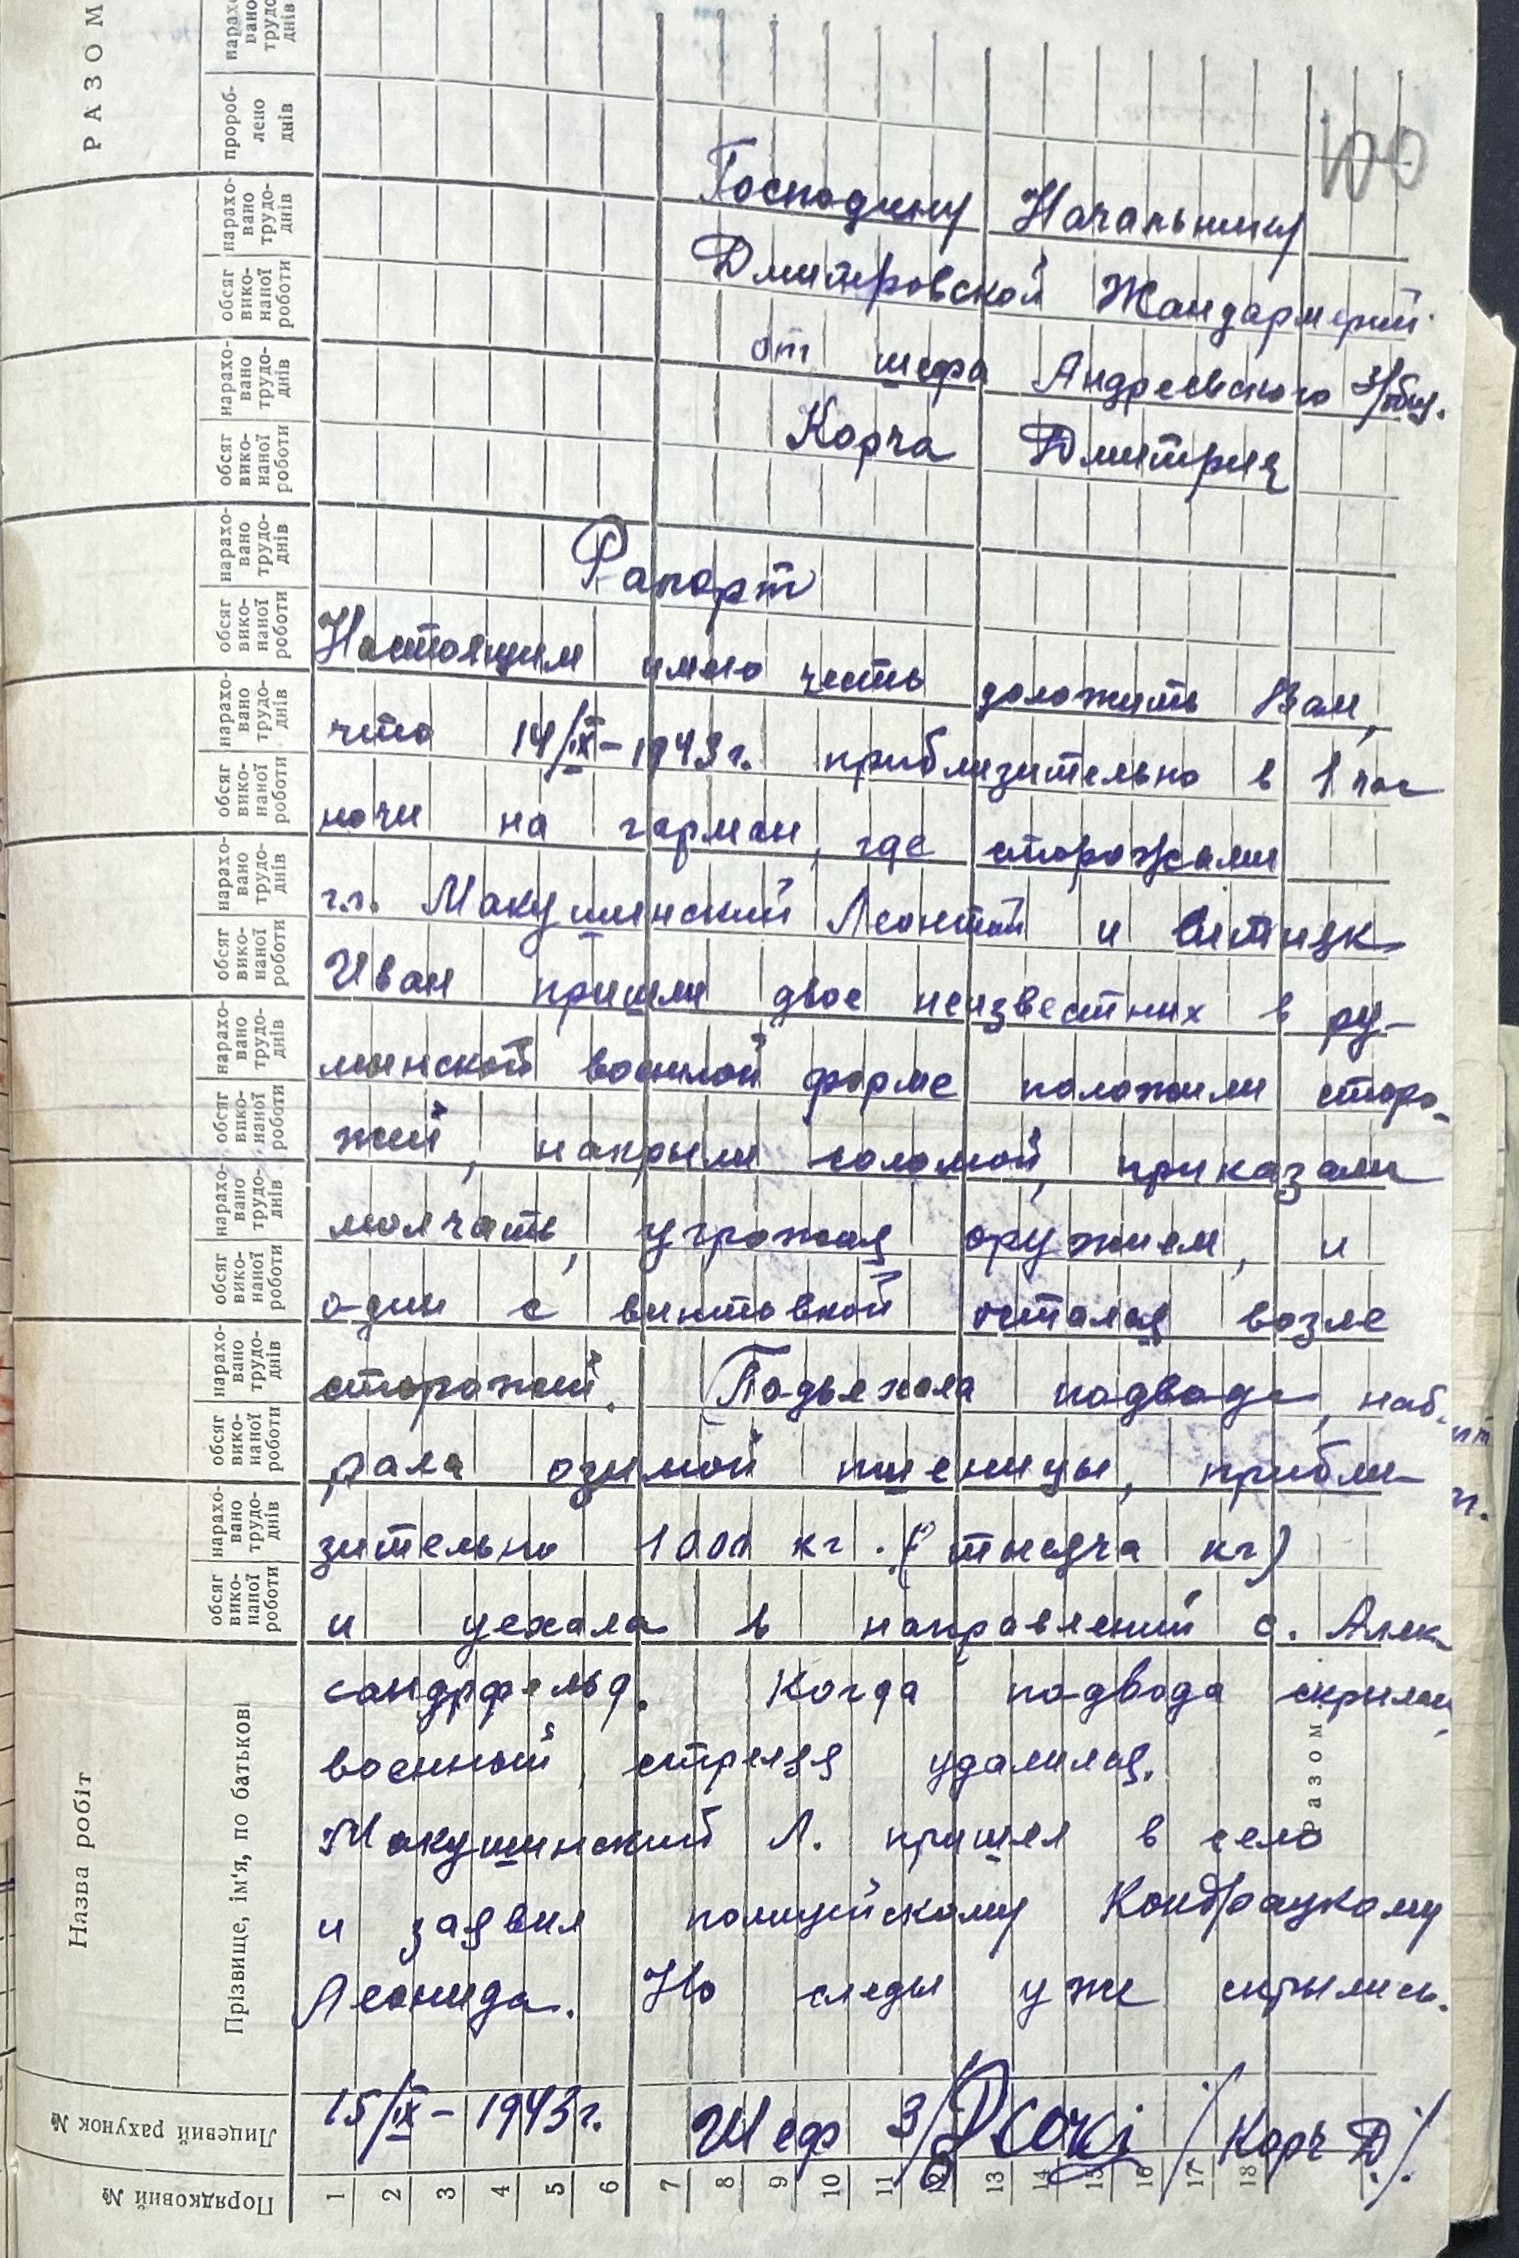 100
Господину Начальнику
Дмитровской Жандармерий
от шефа Андреевского з/общ.
Корча Дмитрия
Рапорт
Настоящим имею честь доложить Вам,
что 14/IX-1943г. приблизительно в 1 час
ночи на гарман, где сторожами
г.г. Макушинский Леонтий и
Иван пришли двое неизвестных в ру-
мынской военной форме положили сторо-
жей, накрыли соломой, приказали
молчать, угрожая оружием, и
один с винтовкой остался возле
сторожей. Подъехала подвода, наб-
рала озимой пшеницы, прибли-
зительно 1000 кг. (тысяча кг)
и уехала в направлений с. Алек-
сандрфельд. Когда подвода скрылась,
военный, стреляя удалился.
Макушинский Л. пришел в село
и заявил полицейскому Кондрацкому
Леониду. Но следы уже скрылись.
15/IX-1943г. Шеф з/ /Корч Д./
РАЗОМ
нарахо-вано трудо-днів
пророб-лено днів
нарахо-вано трудо-днів
обсяг вико-наної роботи
нарахо-вано трудо-днів
обсяг вико-наної роботи
нарахо-вано трудо-днів
обсяг вико-наної роботи
нарахо-вано трудо-днів
обсяг вико-наної роботи
нарахо-вано трудо-днів
обсяг вико-наної роботи
нарахо-вано трудо-днів
обсяг вико-наної роботи
нарахо-вано трудо-днів
обсяг вико-наної роботи
нарахо-вано трудо-днів
обсяг вико-наної роботи
нарахо-вано трудо-днів
обсяг вико-наної роботи
Назва робіт
Прізвище, ім'я, по батькові
Разом
Лицевий рахунок №
Порядковий №
1 2 3 4 5 6 7 8 9 10 11 12 13 14 15 16 17 18